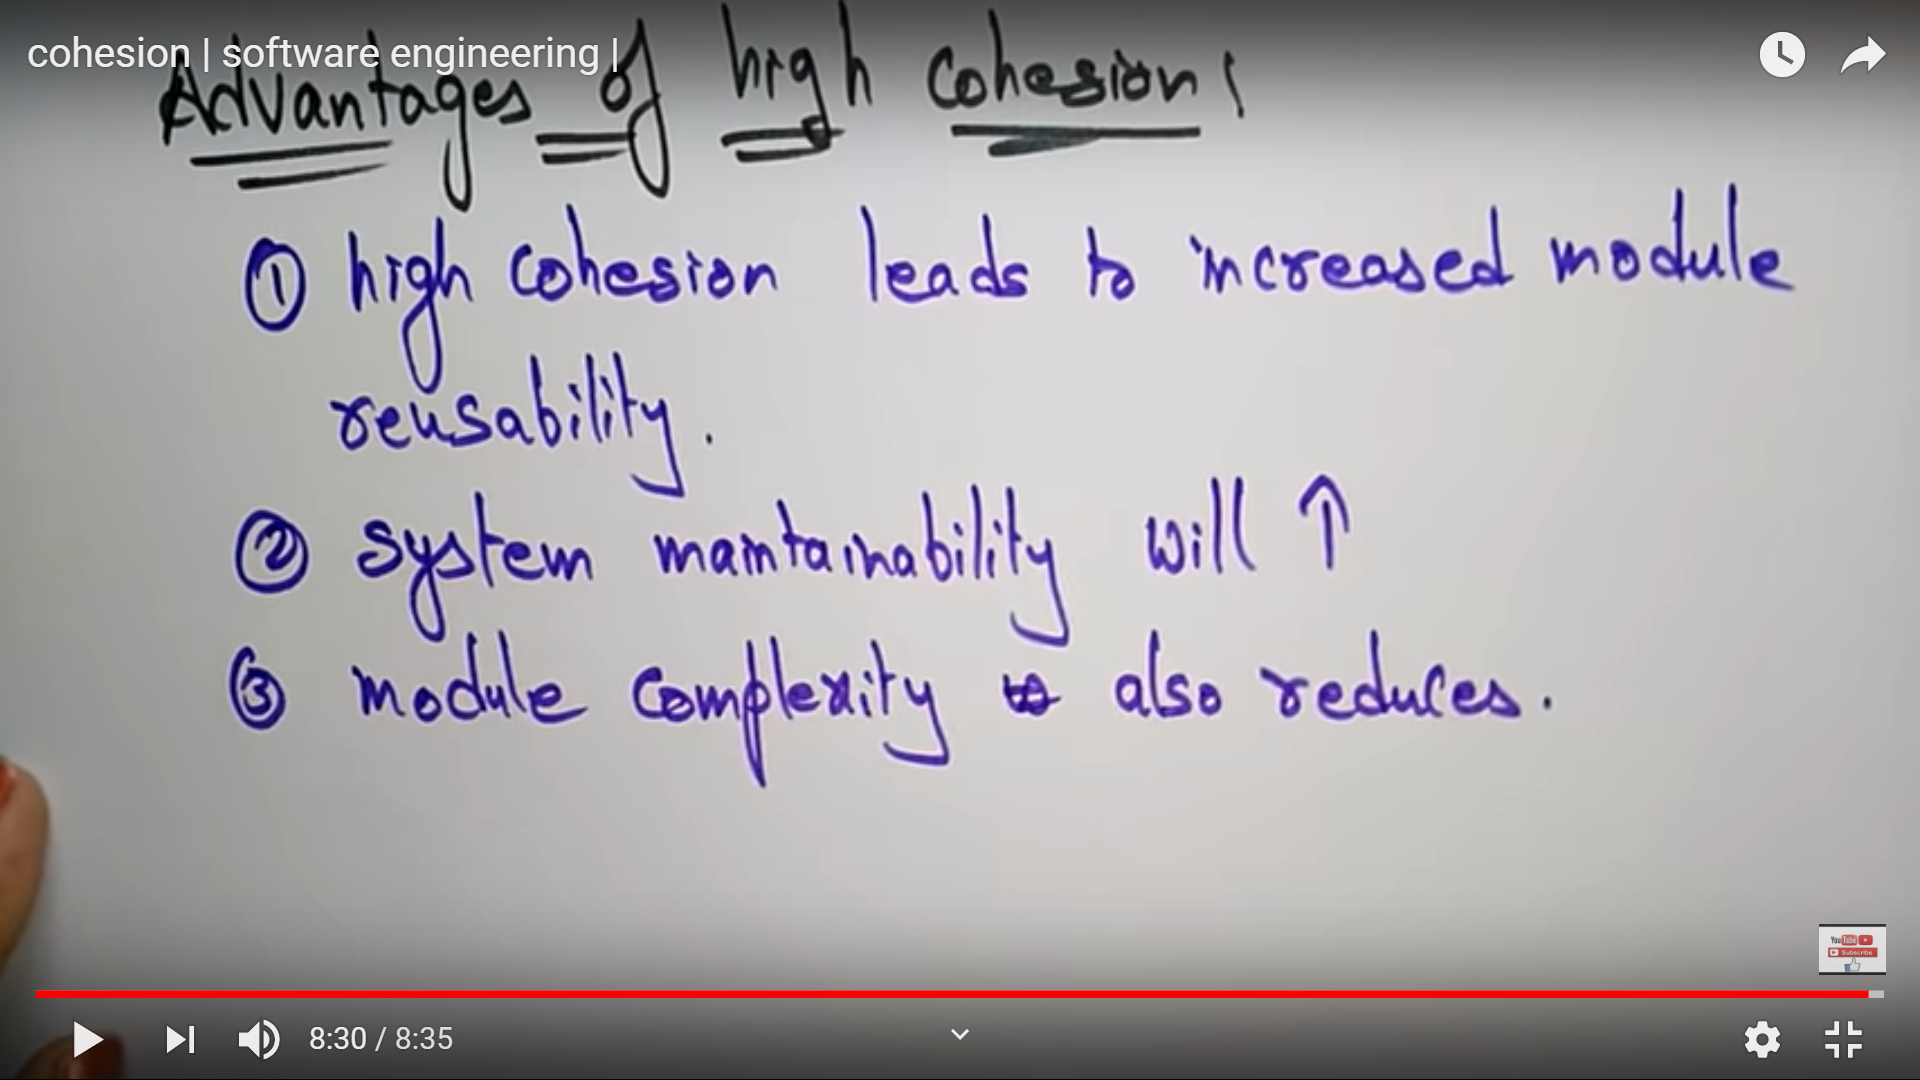 cohesion | software engineering |
Advantages of high cohesion:
① high cohesion leads to increased module
reusability.
② system maintainability will ↑
③ module complexity also reduces.
YouTube
Subscribe
8:30 / 8:35